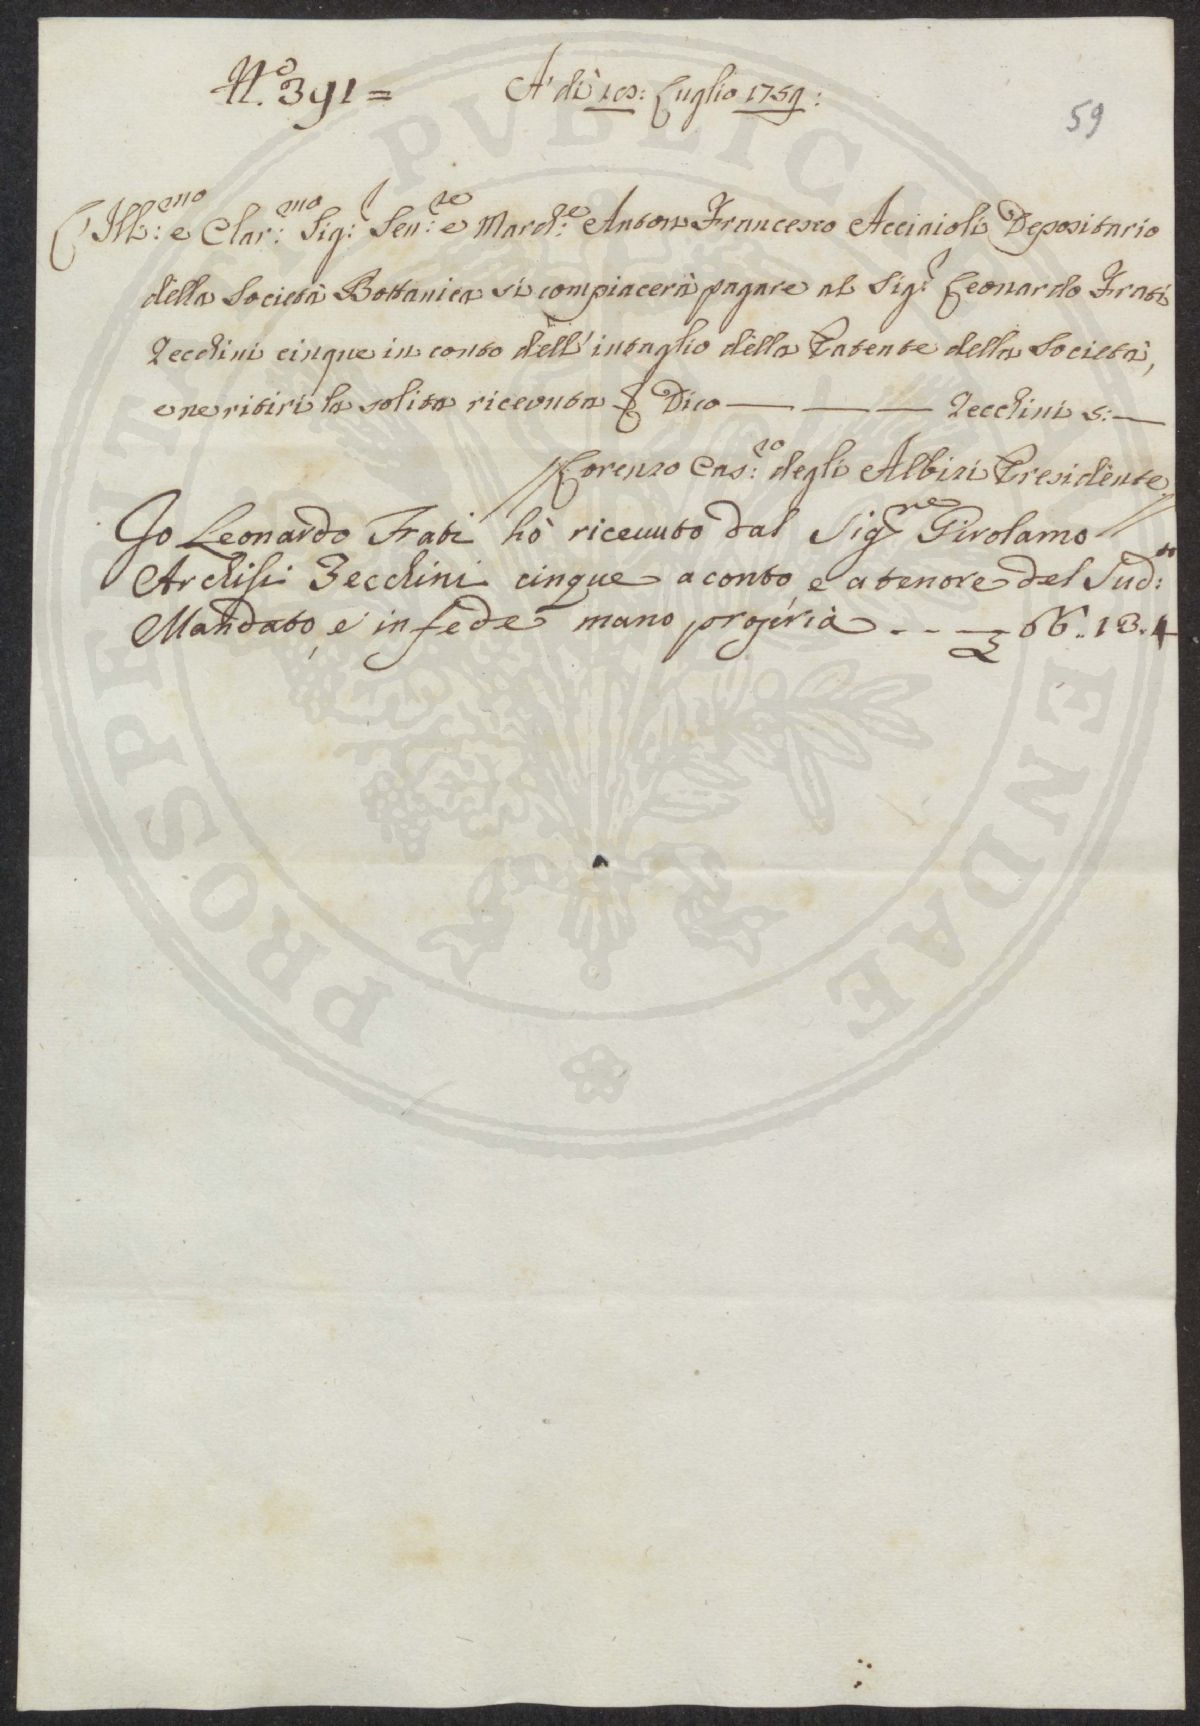 N.o 391 =
A' dì 10: Luglio 1759:
59
Ill:mo e Clar:mo Sig:r Sen:re e March:e Anton Francesco Acciaioli Depositario
della Società Bottanica si compiacerà pagare al Sig:r Leonardo Frati
Zecchini cinque in conto dell' intaglio della Patente della Società,
e ne ritiri la solita ricevuta Dico — — — Zecchini 5: —
Lorenzo Cas:ro degli Albizi Presidente
Io Leonardo Frati hò riceuuto dal Sig.re Girolamo
Zecchini cinque a conto, e a tenore del Sud:to
Mandato, e in fede mano propria - - — 66.. 13. 4
PROSPERITATI PVBLICAE AVGENDAE